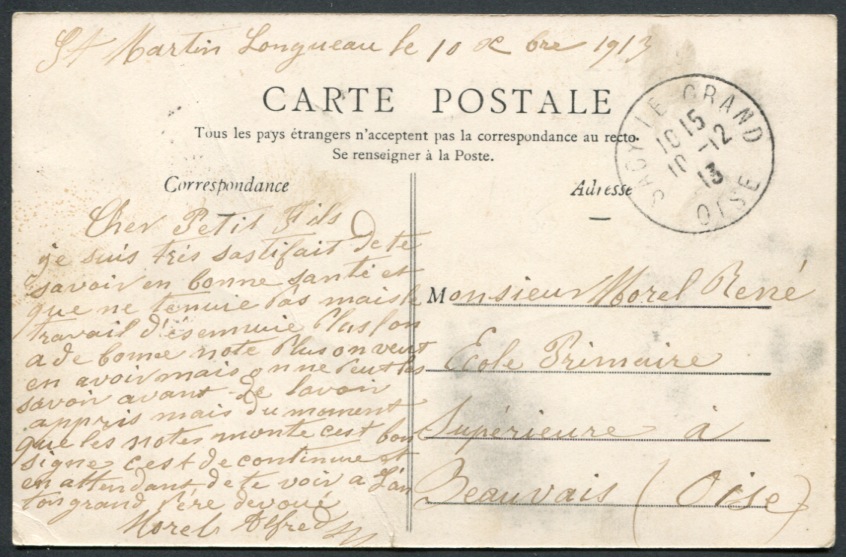 St Martin Longueau le 10 Xbre 1913
CARTE POSTALE
Tous les pays étrangers n'acceptent pas la correspondance au recto.
Se renseigner à la Poste.
SACY LE GRAND
1015
10-12
13
OISE
Correspondance
Cher Petit Fils
je suis très sastifait de te
savoir en bonne santé et
que ne tenuie pas mais le
travail d'ésennuie Plus lon
a de bonne note Plus on veut
en avoir mais on ne Peut les
savoir avant de lavoir
appris mais du moment
que les notes monte cest bon
signe cest de continue et
en attendant de te voir a l'an
ton grand Père devoué
Morel Alfred
Adresse
Monsieur Morel René
Ecole Primaire
Supérieure à
Beauvais (Oise)